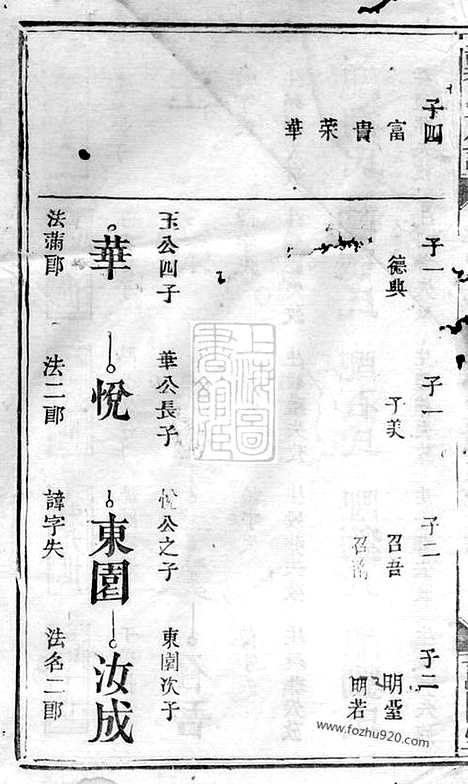 子四
富
貴
榮
華
子一
德典
子一
子美
子二
召吾
子二
明堂
明若
玉公四子
華公長子
悅公之子
東園次子
華
悅
東園
汝成
法滿郎
法二郎
諱字失
法名二郎
上海圖書館藏
www.fozhu920.com